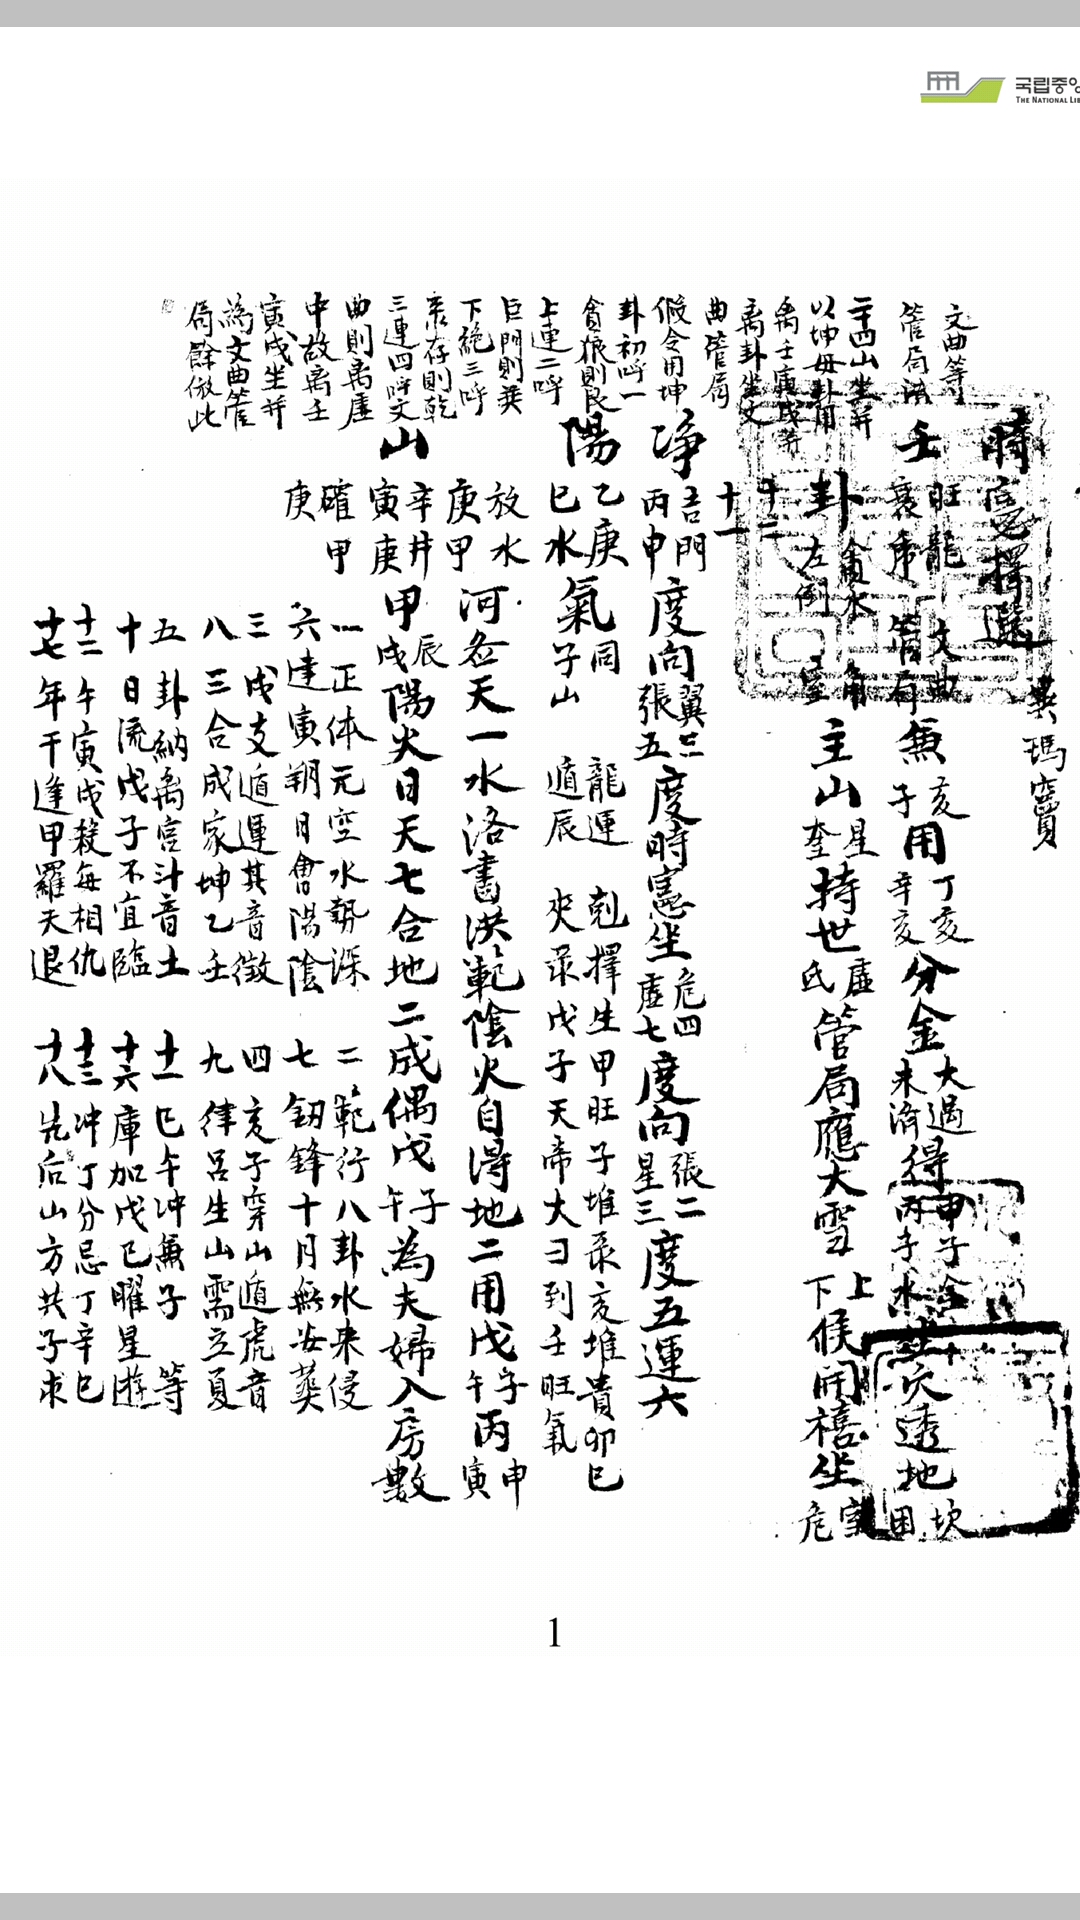 국립중앙
THE NATIONAL LIB
時憲擇選
文曲等
管局法
二十四山坐幷
以坤母卦用
离壬寅戌等
离卦坐文
曲管局
假令用坤
卦初呼一
貪狼則艮
上連二呼
巨門則巽
下絶三呼
彔存則乾
三連四呼文
曲則离虛
中故离壬
寅戌坐幷
為文曲管
局餘倣此
壬
旺龍 文曲
衰 管局
無
亥
子
用
丁亥
辛亥
分金
大過
未濟
得
甲子金
丙子水
穴透地
坎
困
卦
左倒
主山
星
奎
持世
虛
氐
管局應大雪
上
下
候開禧坐
室
危
十二
十一
淨
吉門
丙申
度向
翼三
張五
度時憲坐
危四
虛七
度向
張二
星三
度五運六
陽
乙庚
巳水
氣
同
子山
龍運 剋擇生甲旺子堆彔亥堆貴卯巳
遁辰 夾彔戊子天帝大曰到壬旺氣
放水
庚甲
河 天一水洛書洪範陰火自得地二用戊
子
午
丙
申
寅
山
辛井
寅庚
甲
辰
戌
陽火日天七合地二成偶戊
子
午
為夫婦入房數
確甲
庚
一 正体元空水勢深
二 範行八卦水来侵
六 建寅朔日會陽陰
七 釰鋒十月無安葬
三 戊支遁運其音徵
四 亥子穿山遁虎音
八 三合成家坤乙壬
九 律呂生山需立夏
五 卦納离宮斗音土
十一 巳午冲無子等
十 日流戊子不宜臨
十六 庫加戊己曜星遊
十二 午寅戌殺每相仇
十三 冲丁分忌丁辛巳
十七 年干逢甲羅天退
十八 先后山方共子求
1